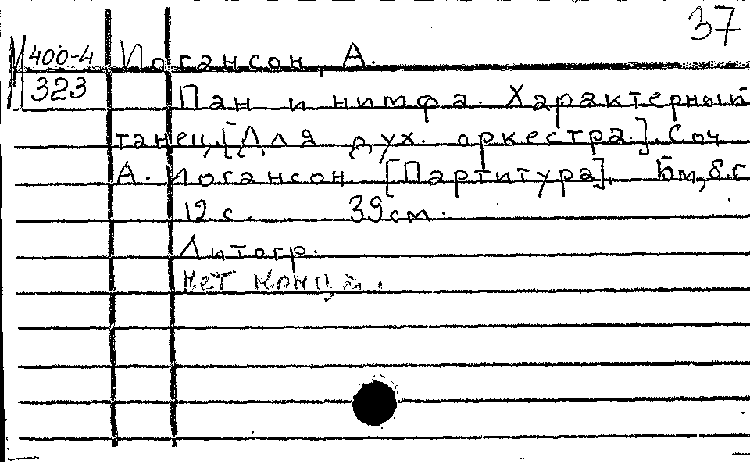 37
400-4 Иогансон, А.
323 Пан и нимфа. Характерный
танец. [Для дух. оркестра.] Соч.
А. Иогансон. [Партитура]. Бм, б.г.
12 с. 39 см.
Литогр.
Нет конца.